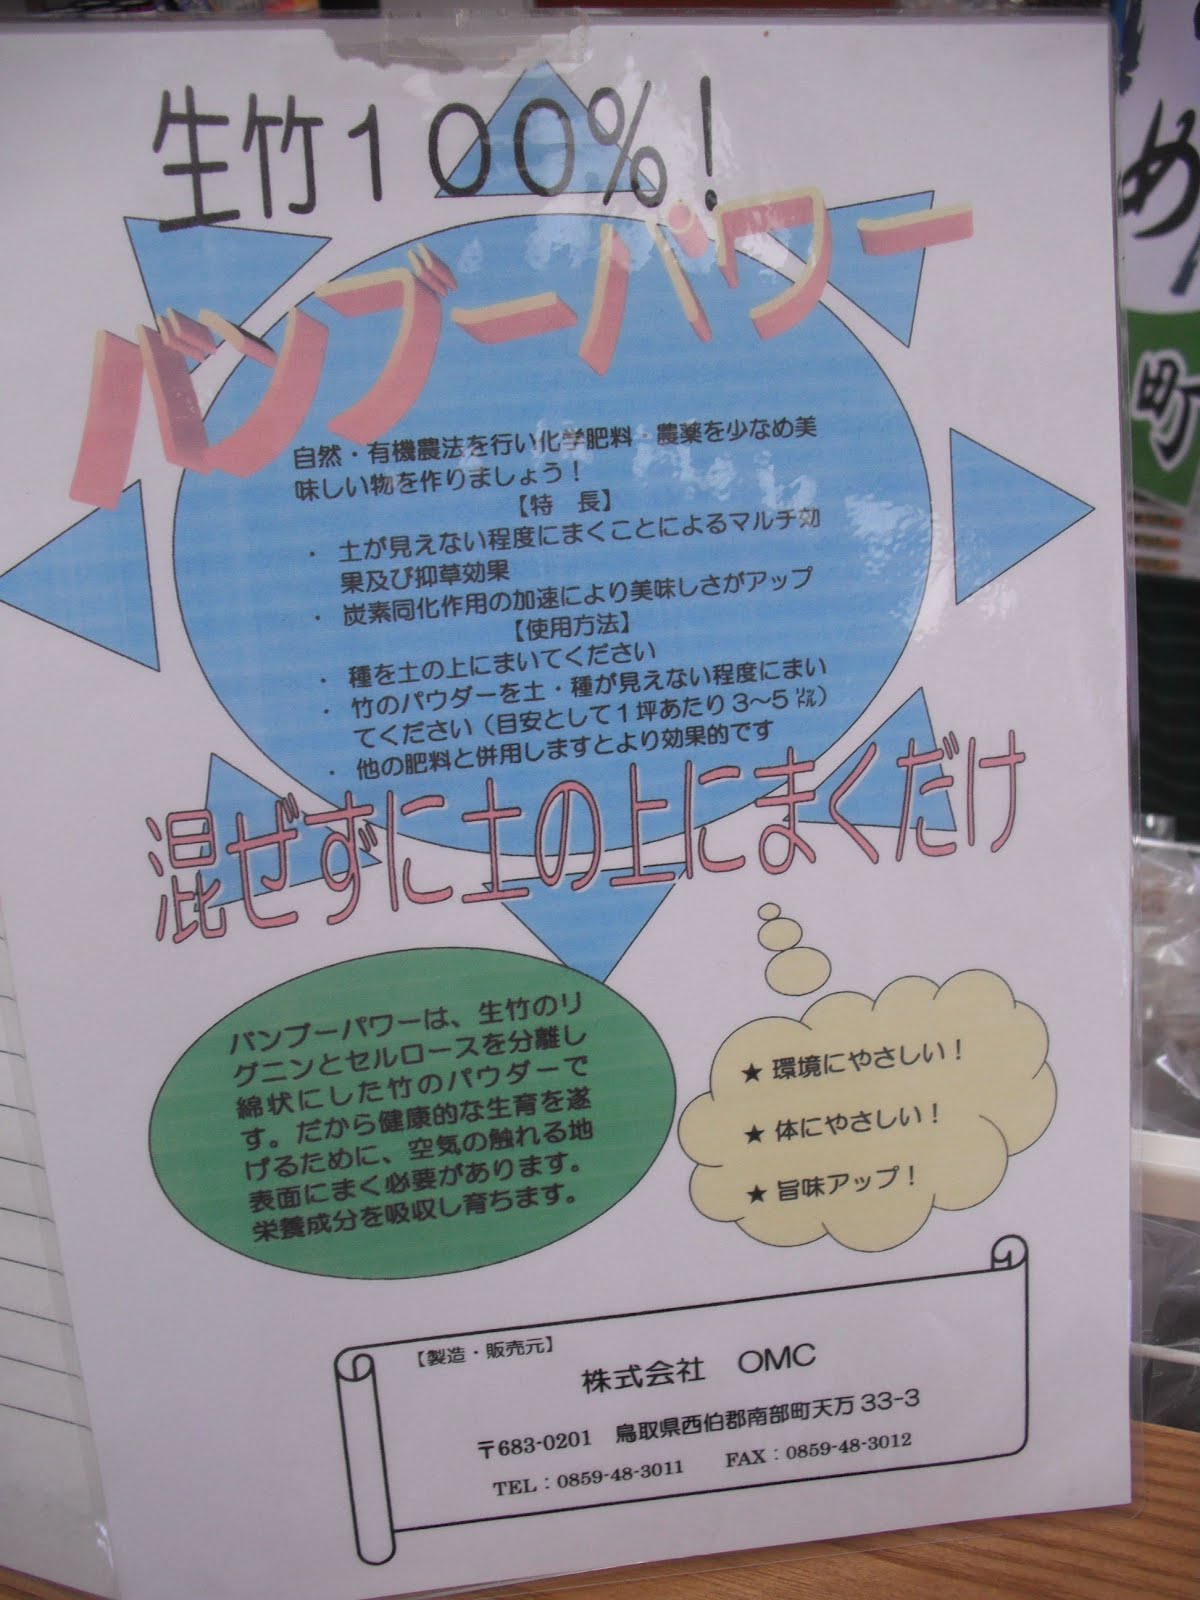 生竹100%!
バンブーパワー
自然・有機農法を行い化学肥料・農薬を少なめ美
味しい物を作りましょう!
【特 長】
・ 土が見えない程度にまくことによるマルチ効
果及び抑草効果
・ 炭素同化作用の加速により美味しさがアップ
【使用方法】
・ 種を土の上にまいてください
・ 竹のパウダーを土・種が見えない程度にまい
てください(目安として1坪あたり3~5㍑)
・ 他の肥料と併用しますとより効果的です
混ぜずに土の上にまくだけ
バンブーパワーは、生竹のリ
グニンとセルロースを分離し
綿状にした竹のパウダーで
す。だから健康的な生育を遂
げるために、空気の触れる地
表面にまく必要があります。
栄養成分を吸収し育ちます。
★ 環境にやさしい!
★ 体にやさしい!
★ 旨味アップ!
【製造・販売元】
株式会社 OMC
〒683-0201 鳥取県西伯郡南部町天万33-3
TEL:0859-48-3011 FAX:0859-48-3012
め
町